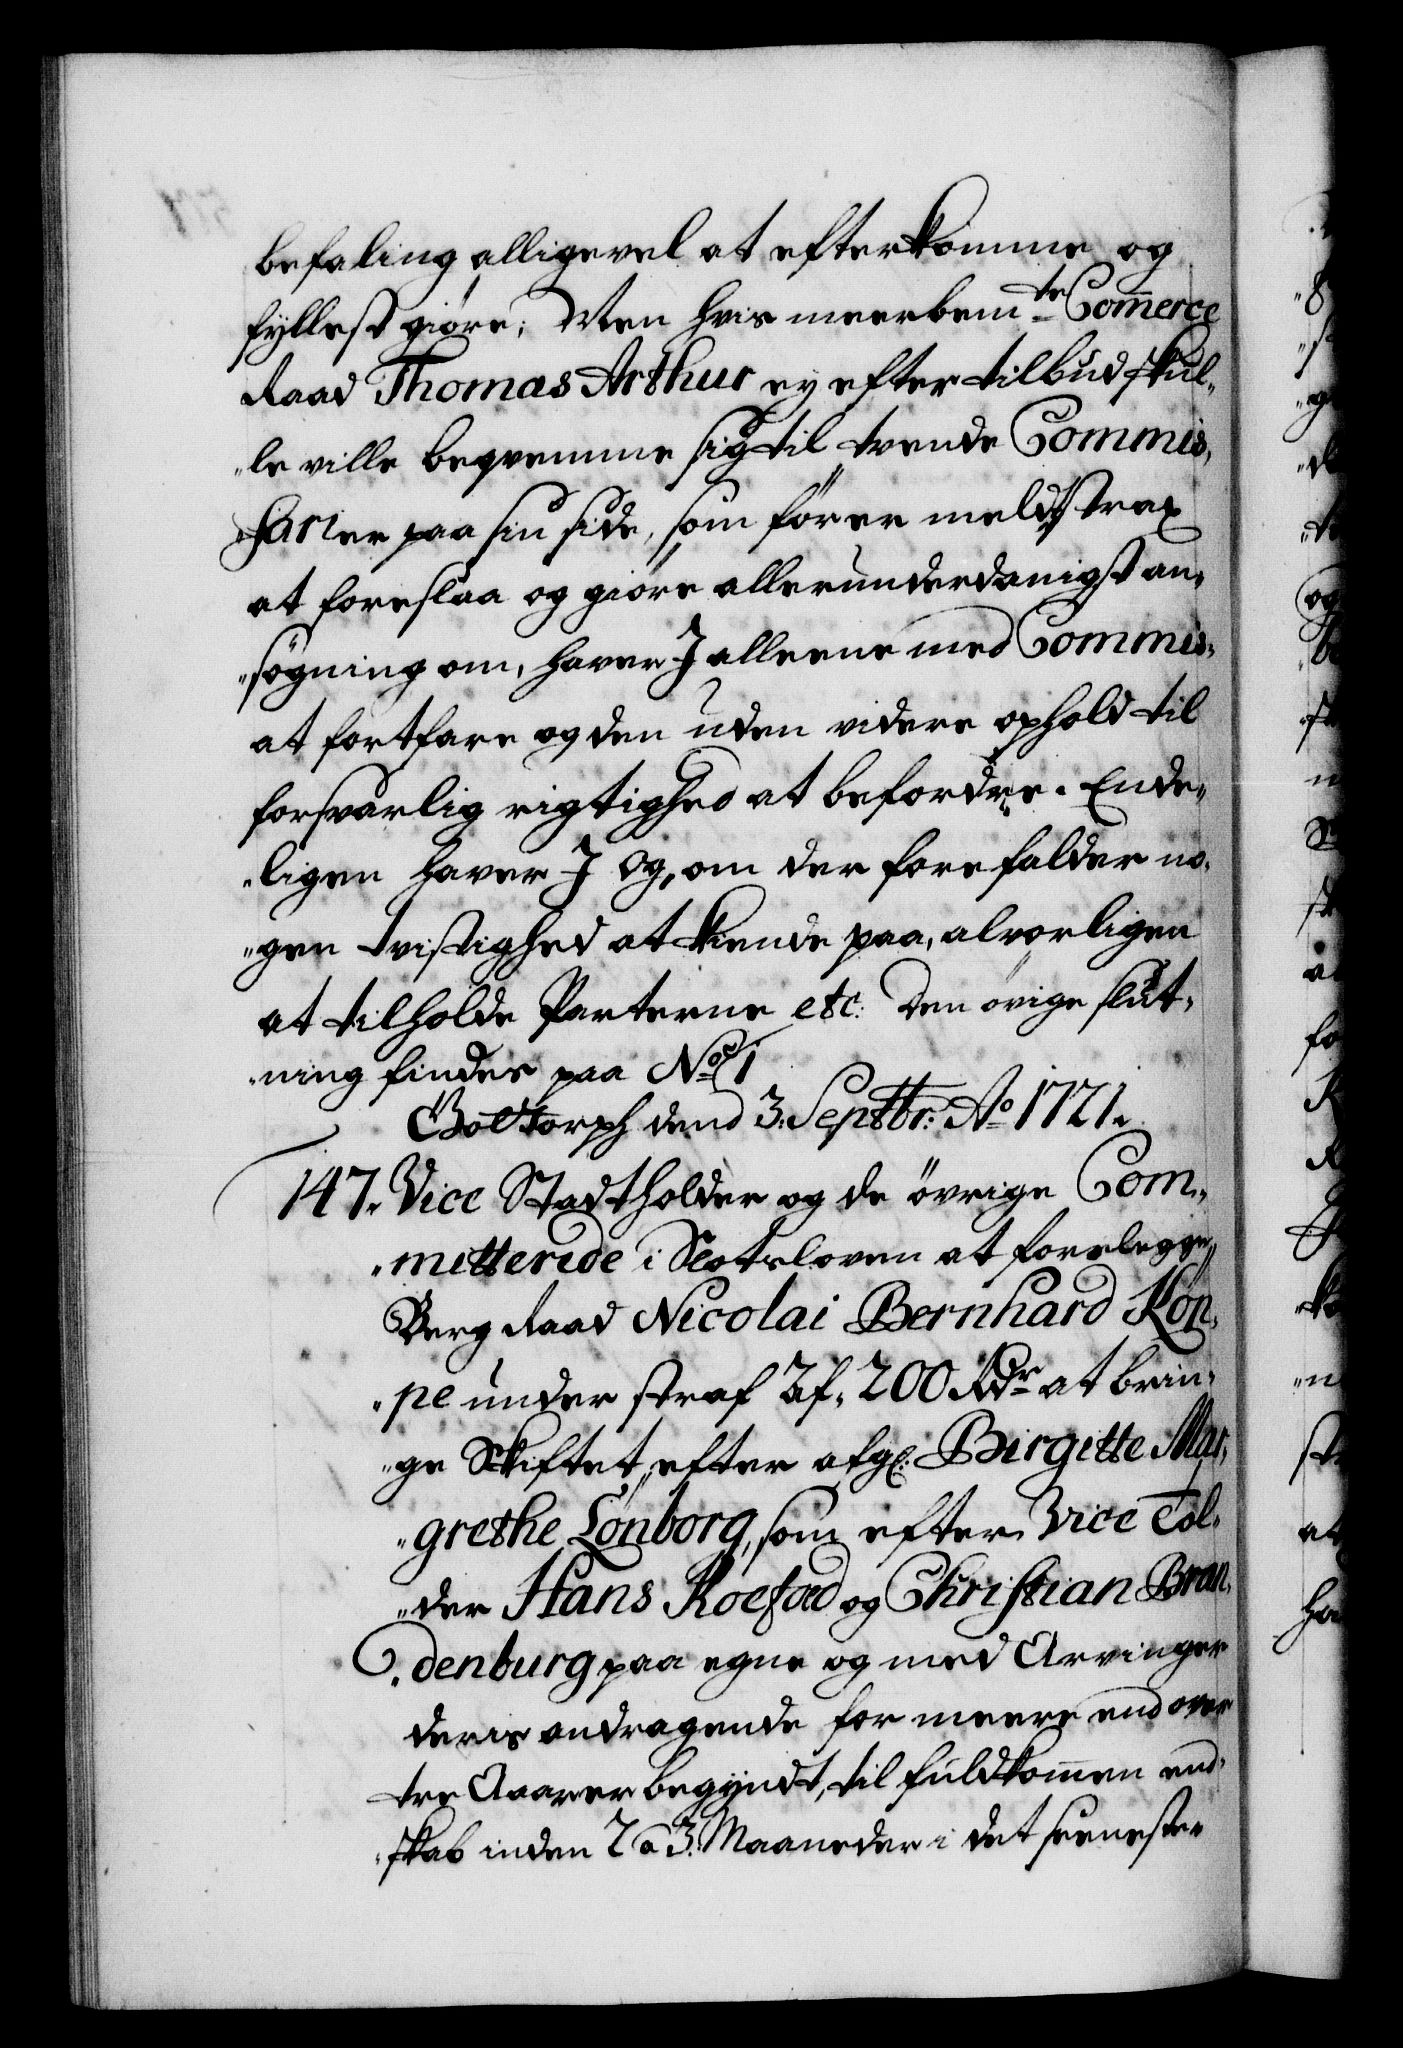 befaling alligevel at efterkomme og
fyllest giøre; Men hvis meerbem.te Com̄erce
Raad Thomas Arthur ey efter tilbud skul„
„le ville beqvemme sig til tvende Commis„
sarier paa sin side, som før er meldt strax
at foreslaa og giøre allerunderdanigst an„
„søgning om, haver I alleene med Commis:
at fortfare og den uden videre ophold til
forsvarlig rigtighed at befordre. Ende„
„ligen haver I og, om der forefalder no„
„gen tvistighed at kiende paa, alvorligen
at tilholde Parterne etc: Den øvige slut„
„ning findes paa No
Gottorph dend 3. Septbr: Ao 1721.
147. Vice Stadtholder og de øvrige Com„
„mitterede i Slotsloven at forelegge
Berg Raad Nicolai Bernhard Køp„
„pe under straf af 200 Rdr at brin„
„ge Skiftet efter afg: Birgitte Mar„
„grethe Lønborg, som efter Vice Tol„
„der Hans Koefoed og Christian Bran„
„denburg paa egne og med Arvinger
deris andragende for meere end over
tre Aarer begyndt, til fuldkom̄en end„
„skab inden 2 a 3. Maaneder i det seeneste